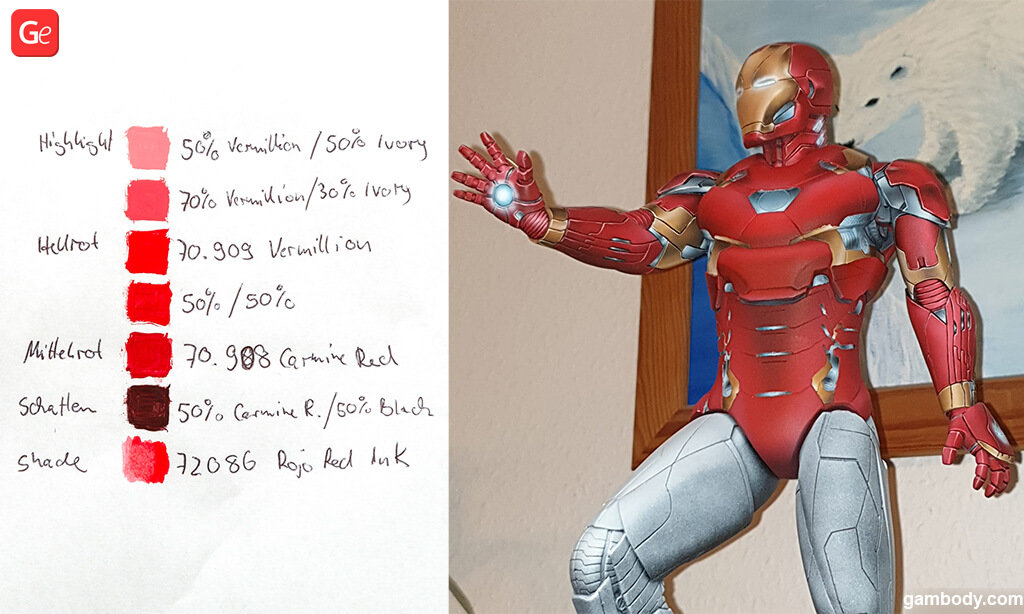 Ge
Highlight 50% Vermillion / 50% Ivory
70% Vermillion/30% Ivory
Hellrot 70.909 Vermillion
50% / 50%
Mittelrot 70.908 Carmine Red
Schatten 50% Carmine R./50% Black
Shade 72086 Rojo Red Ink
gambody.com